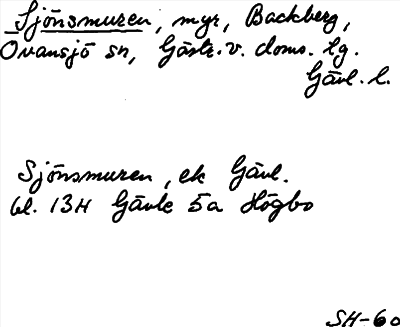 Sjönsmuren, myr, Backberg,
Ovansjö sn, Gästr. v. doms. lg.
Gävl. l.
Sjönsmuren, ek Gävl.
bl. 13H Gävle 5a Högbo
SH-60